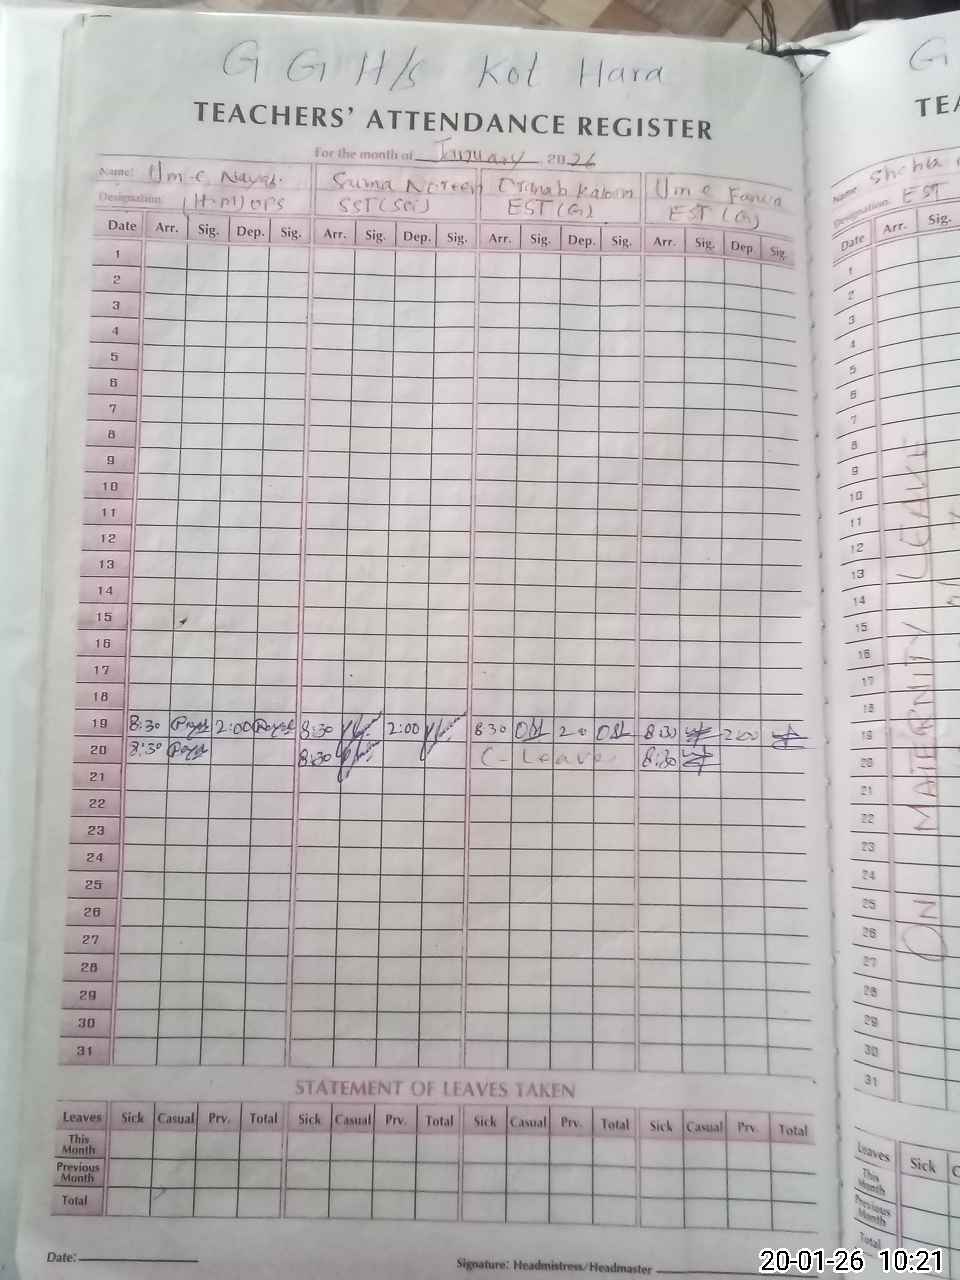 G G H/S Kot Hara
TEACHERS' ATTENDANCE REGISTER
For the month of January 2026
Name: Um-e Nayab. Saima Noreen Kalsom Um e Farwa
Designation: (H.M) OPS SST(Sci) EST(G) EST(G)
Date Arr. Sig. Dep. Sig. Arr. Sig. Dep. Sig. Arr. Sig. Dep. Sig. Arr. Sig. Dep. Sig.
1
2
3
4
5
6
7
8
9
10
11
12
13
14
15
16
17
18
19 8:30 2:00 8:30 2:00 8:30 8:30 2:00
20 8:30 8:30 C-Leave 8:30
21
22
23
24
25
26
27
28
29
30
31
STATEMENT OF LEAVES TAKEN
Leaves Sick Casual Prv. Total Sick Casual Prv. Total Sick Casual Prv. Total Sick Casual Prv. Total
This Month
Previous Month
Total
Date:
Signature: Headmistress/Headmaster
G
TEA
Name: Shehla
Designation: EST
Date Arr. Sig.
1
2
3
4
5
6
7
8
9
10
11
12
13
14
15
16
17
18
19
20
21
22
23
24
25
26
27
28
29
30
31
ON MATERNITY LEAVE
Leaves Sick C
This Month
Previous Month
Total
20-01-26 10:21